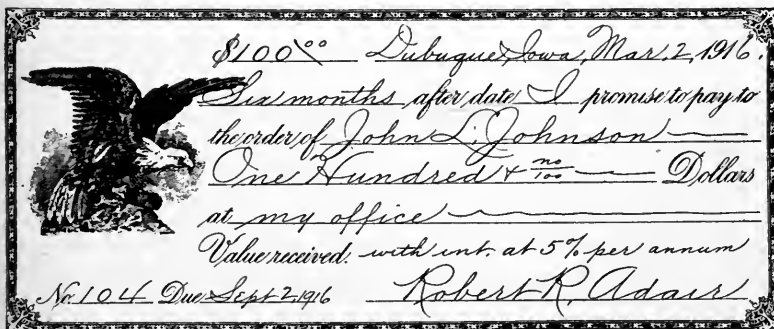 $100 00 Dubuque, Iowa, Mar. 2, 1916.
Six months after date I promise to pay to
the order of John L. Johnson
One Hundred & no/100 Dollars
at my office
Value received. with int. at 5% per annum
No. 104 Due Sept 2 1916 Robert R. Adair